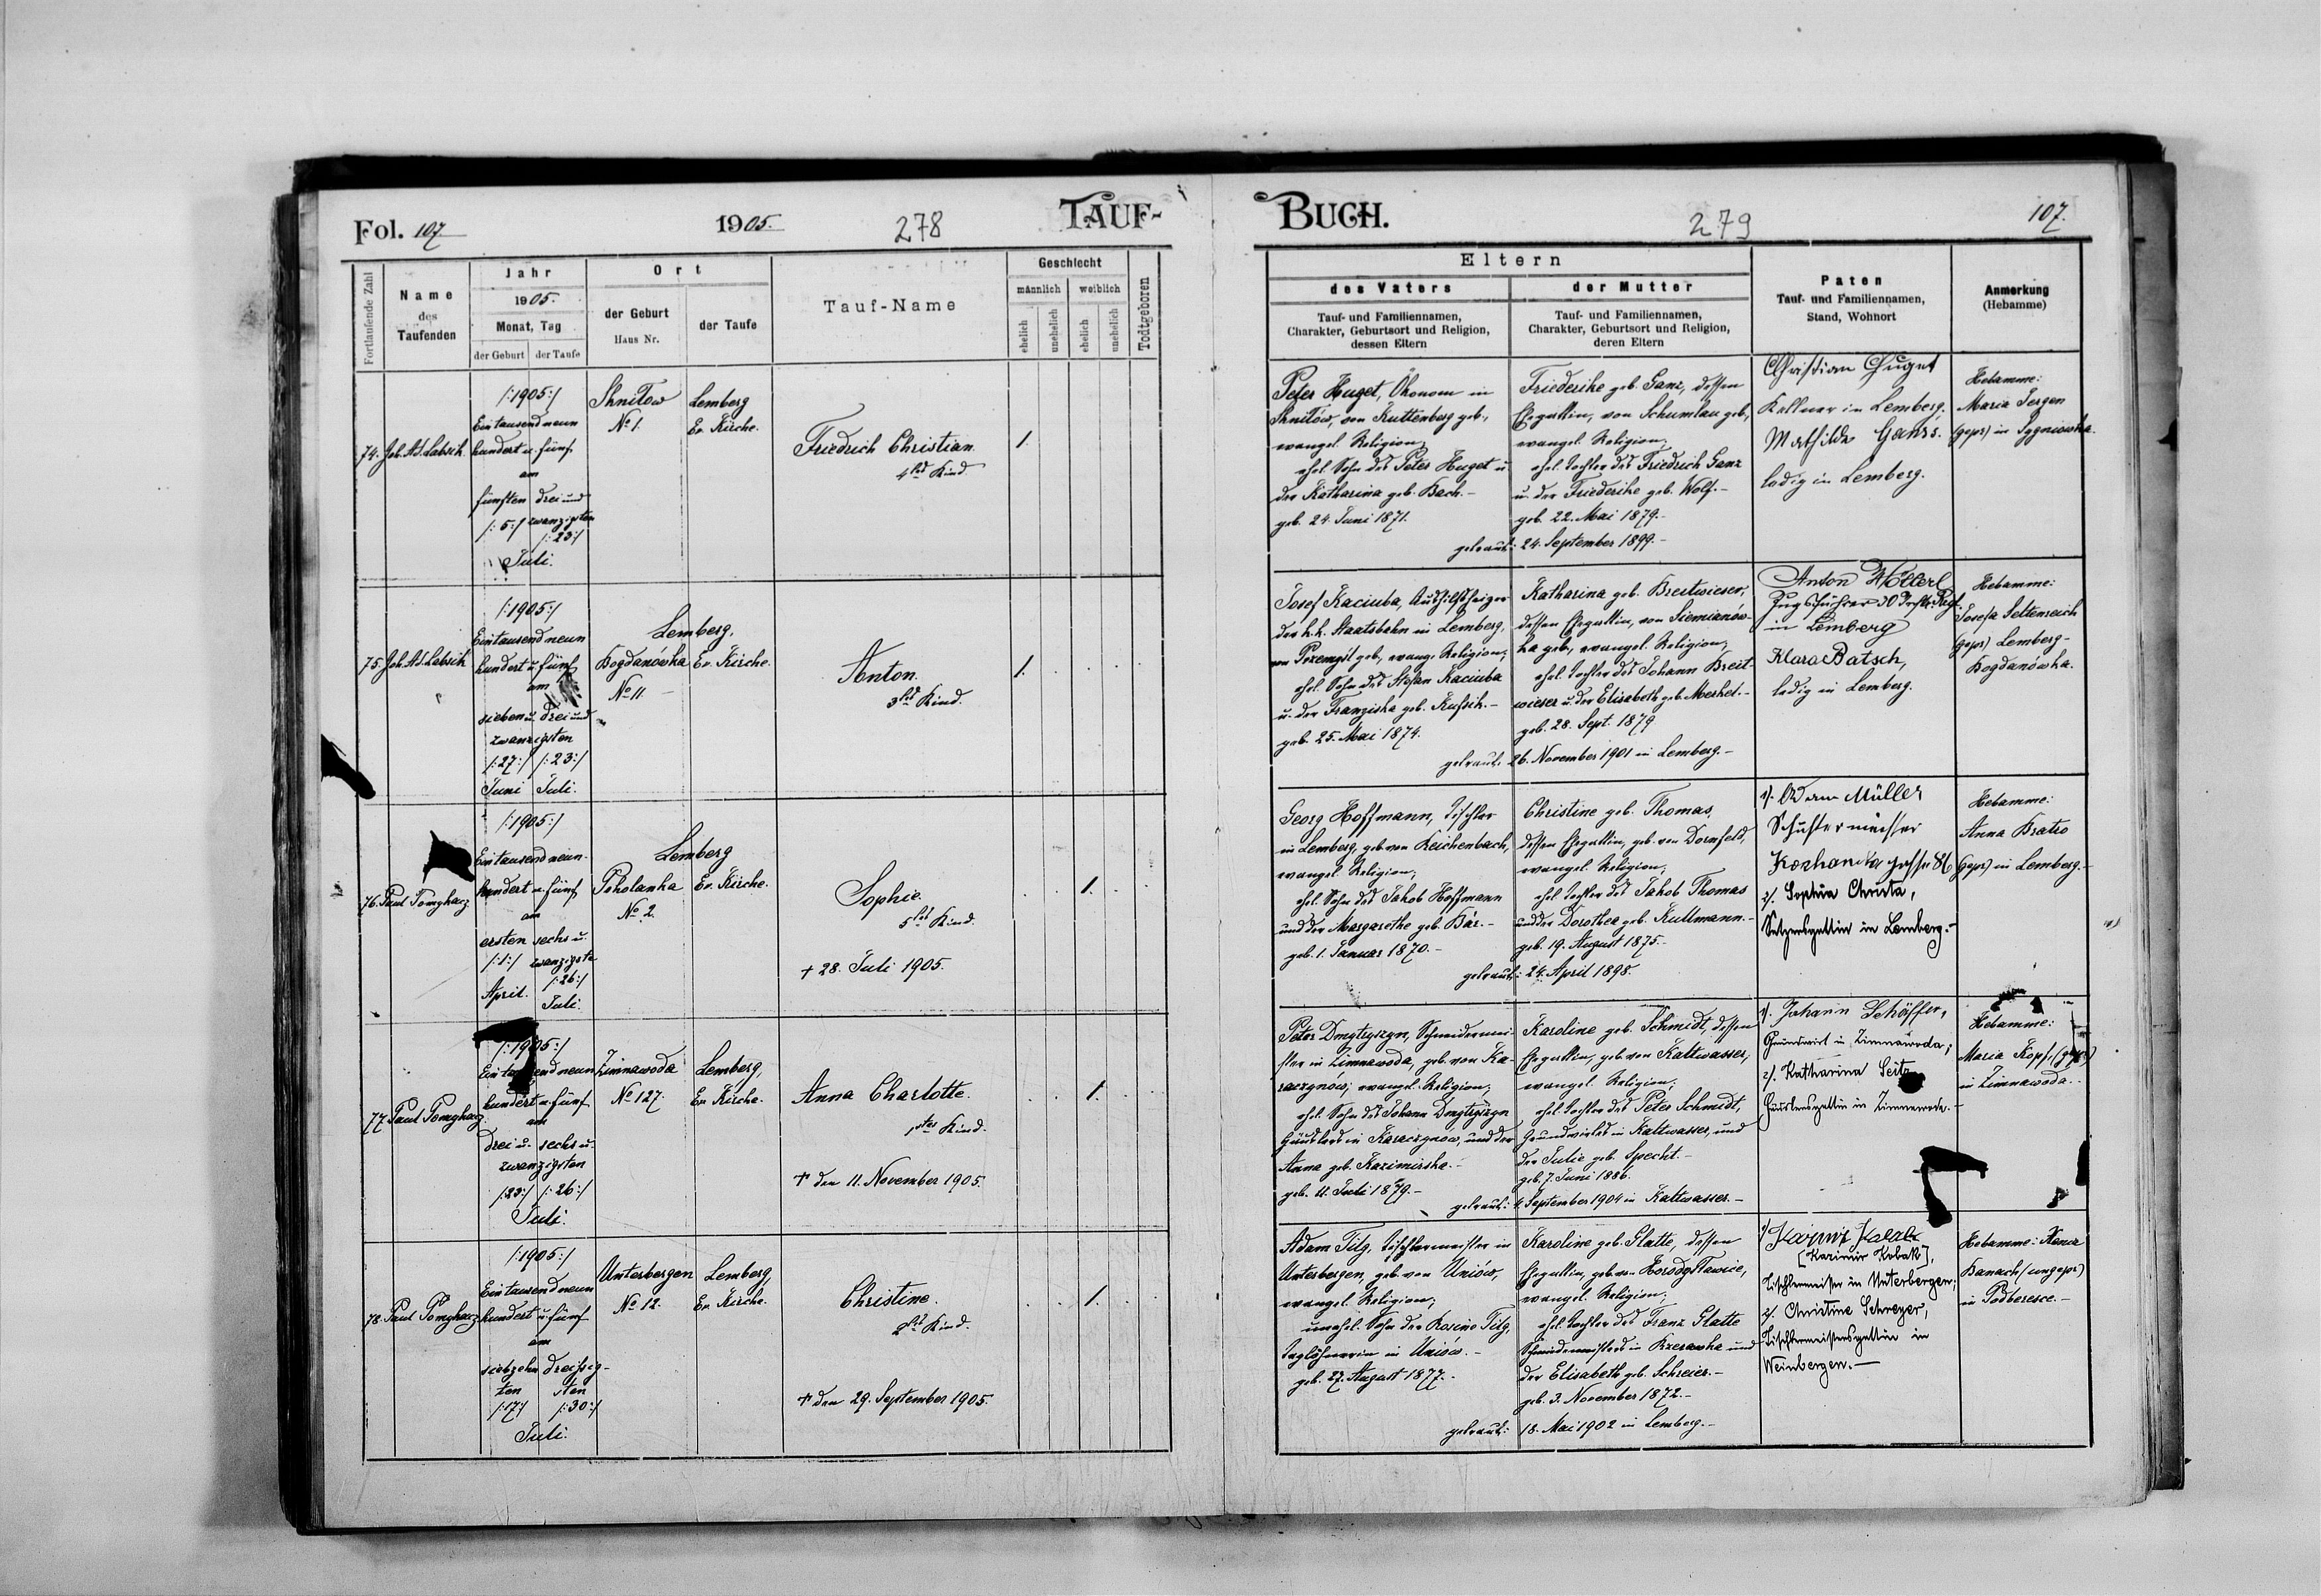 Fol. 107
1905.
278
TAUF-
Fortlaufende Zahl
Name
des
Taufenden
Jahr
1905.
Monat, Tag
der Geburt
der Taufe
Ort
der Geburt
Haus Nr.
der Taufe
Tauf-Name
Geschlecht
männlich
weiblich
ehelich
unehelich
ehelich
unehelich
Todtgeboren
74. Joh. Ad. Labsik
/:1905:/
Ein tausend neun
hundert u. fünf
am
fünften drei und
/:5:/ zwanzigsten
/:23:/
Juli.
Shnitow
No 1.
Lemberg
Ev. Kirche.
Friedrich Christian
4tes Kind
1.
75. Joh. Ad. Labsik
/:1905:/
Eintausend neun
hundert u. fünf
am
sieben u. drei und
zwanzigsten
/:27:/ /:23:/
Juni Juli.
Lemberg,
Bogdanówka Ev. Kirche.
No 11
Anton.
3tes Kind.
1.
76. Paul Pomykacz
/:1905:/
Ein tausend neun-
hundert u. fünf
am
ersten sechs u.
/:1:/ zwanzigste
April. /:26:/
Juli.
Lemberg
Poholanka Ev. Kirche.
No. 2.
Sophie.
5tes Kind.
+ 28. Juli 1905.
1.
77. Paul Pomykacz
/:1905:/
Ein tausend neun
hundert u. fünf
am
drei u. sechs u.
zwanzigsten
/:23:/ /:26:/
Juli.
Zimnawoda
No 127.
Lemberg,
Ev. Kirche.
Anna Charlotte.
1stes Kind.
† den 11. November 1905.
1.
78. Paul Pomykacz
/:1905:/
Ein tausend neun
hundert u. fünf
am
siebzehn dreissig-
ten sten
/:17:/ /:30:/
Juli.
Unterbergen
No 12.
Lemberg,
Ev. Kirche.
Christine.
2tes Kind.
† den 29. September 1905.
1.
BUCH.
279
107.
Eltern
des Vaters
Tauf- und Familiennamen,
Charakter, Geburtsort und Religion,
dessen Eltern
der Mutter
Tauf- und Familiennamen,
Charakter, Geburtsort und Religion,
deren Eltern
Paten
Tauf- und Familiennamen,
Stand, Wohnort
Anmerkung
(Hebamme)
Peter Huget, Ökonom in
Shnitów, von Kuttenberg geb.,
evangel. Religion;
ehel. Sohn des Peter Huget u
der Katharina geb. Bach.-
geb. 24. Juni 1871.
Friederike geb. Ganz, dessen
Ehegattin, von Schumlau geb.,
evangel. Religion;
ehel. Tochter des Friedrich Ganz
u. der Friederike geb. Wolf.-
geb. 22. Mai 1879.-
getraut: 24. September 1899.-
Christian Huget
Kellner in Lemberg,
Mathilde Ganzs.
ledig in Lemberg.
Hebamme:
Maria Sergen
(gepr.) in
Josef Kaciuba, Aushilfsheizer
der k.k. Staatsbahn in Lemberg,
von Przemysl geb., evang. Religion;
ehel. Sohn des Stefan Kaciuba
u. der Franziska geb. -
geb. 25. Mai 1874.
Katharina geb. Breitwieser,
dessen Ehegattin, von Siemianów-
ka geb., evangel. Religion;
ehel. Tochter des Johann Breit-
wieser u. der Elisabeth geb. Merkel.-
geb. 28. Sept. 1879
getraut: 26. November 1901 in Lemberg.-
Anton Höllerl
Zugsführer 30
in Lemberg
Klara Batsch,
ledig in Lemberg.
Hebamme:
Josefa Seltenreich
(gepr.) Lemberg-
Bogdanówka.
Georg Hoffmann, Tischler
in Lemberg, geb. von Reichenbach,
evangel. Religion;
ehel. Sohn des Jakob Hoffmann
und der Margarethe geb. Bär.-
geb. 1. Januar 1870.-
Christine geb. Thomas,
dessen Ehegattin, geb. von Dornfeld,
evangel. Religion;
ehel. Tochter des Jakob Thomas
und der Dorothea geb. Kullmann.-
geb. 19. August 1875.-
getraut: 24. April 1898.
1/. Adam Müller
Schuster meister
gasse 86
2/. Sophia Chuta,
in Lemberg.-
Hebamme:
Anna Bratro
(gepr.) in Lemberg.-
Peter Dmytryszyn, Schneidermei-
ster in Zimnawoda, geb. von Ka-
raczynow; evangel. Religion;
ehel. Sohn des Johann Dmytryszyn
Häuslers in Karaczynow, und der
Anna geb. Kazimirska.-
geb. 11. Juli 1879.-
Karoline geb. Schmidt, dessen
Ehegattin, geb. von Kaltwasser,
evangel. Religion;
ehel. Tochter des Peter Schmidt,
Grundwirtes in Kaltwasser, und
der Julie geb. Specht.-
geb. 7. Juni 1886.
getraut: 4. September 1904 in Kaltwasser.-
1/. Johann Schäffer,
Grundwirt in Zimnawoda;
2/. Katharina Seitz
Häuslersgattin in Zimnawoda.-
Hebamme:
Maria Kopf, (gepr.)
in Zimnawoda.
Adam Tilg, Tischlermeister in
Unterbergen, geb. von Uniów,
evangel. Religion;
unehel. Sohn der Rosine Tilg,
Taglöhnerin in Uniów.-
geb. 27. August 1877.
Karoline geb. Platte, dessen
Ehegattin, geb. von Horodysławice,
evangel. Religion;
ehel. Tochter des Franz Platte
Schmiedemeisters in und
der Elisabeth geb. Schreier.-
geb. 3. November 1872.-
getraut: 18. Mai 1902 in Lemberg.-
1/
[Kazimir Kolak],
Tischlermeister in Unterbergen;
2/. Christine Schreyer,
Tischlermeistersgattin in
Weinbergen.-
Hebamme: Xenia
Banach (ungepr.)
in Podberesce.-